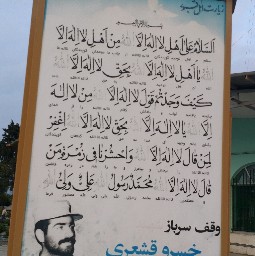 زیارت اهل قبور
اَلسَّلامُ عَلیٰ اَهْلِ لا اِلهَ اِلَّا اللهُ مِنْ اَهْلِ لا اِلهَ اِلَّا
اللهُ یا اَهْلَ لا اِلهَ اِلَّا اللهُ بِحَقِّ لا اِلهَ اِلَّا اللهُ
کَیْفَ وَجَدْتُمْ قَوْلَ لا اِلهَ اِلَّا اللهُ مِنْ لا اِلهَ
اِلَّا اللهُ یا لا اِلهَ اِلَّا اللهُ بِحَقِّ لا اِلهَ اِلَّا اللهُ اِغْفِرْ
لِمَنْ قالَ لا اِلهَ اِلَّا اللهُ وَاحْشُرْنا فی زُمْرَةِ مَنْ
قالَ لا اِلهَ اِلَّا اللهُ مُحَمَّدٌ رَسُولُ اللهِ عَلِیٌّ وَلِیُّ اللهِ
وقف سرباز
خسرو قشعری